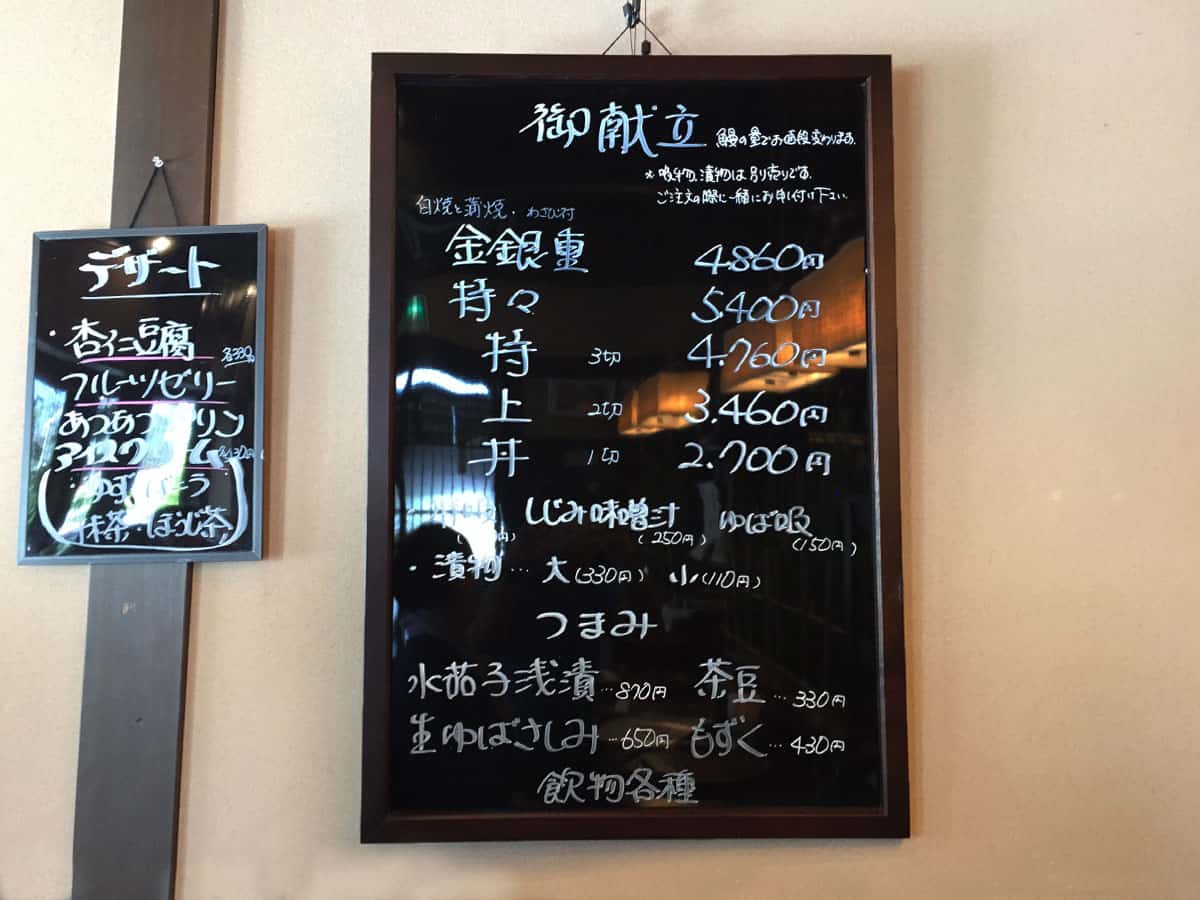 デザート
・杏仁豆腐 各330円
フルーツゼリー
あつあつプリン
アイスクリーム 各430円
ゆず
抹茶・ほうじ茶
御献立 鰻の量でお値段変わります。
*吸物、漬物は別売りです。
ご注文の際に一緒にお申し付け下さい。
白焼と蒲焼・わさび付
金銀重 4.860円
特々 5.400円
特 3切 4.760円
上 2切 3.460円
丼 1切 2.700円
しじみ味噌汁 ゆば吸
(250円) (150円)
・漬物… 大(330円) 小(110円)
つまみ
水茄子浅漬…870円 茶豆…330円
生ゆばさしみ…650円 もずく…430円
飲物各種